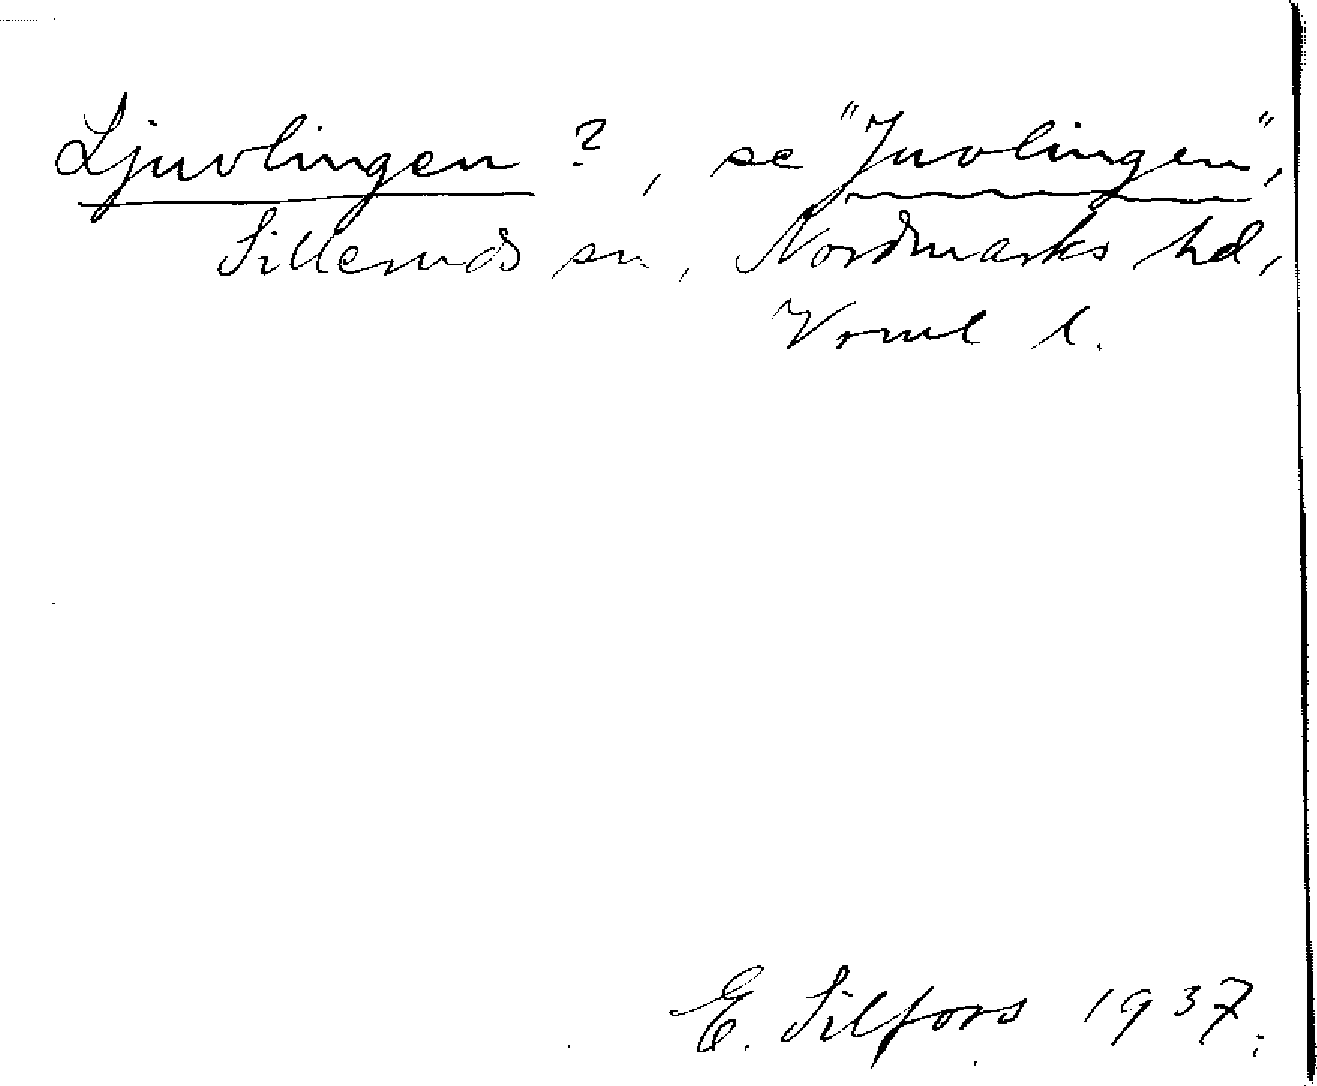 Ljuvlingen ?, se "Juvlingen",
Silleruds sn, Nordmarks hd,
Vrml l.
E. Silfors 1937.